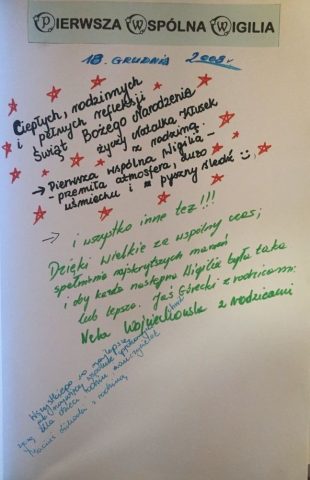 PIERWSZA WSPÓLNA WIGILIA
18. GRUDNIA 2008 r.
Ciepłych, rodzinnych
i pełnych refleksji
Świąt Bożego Narodzenia
życzy Natalka Kłusek
z rodziną.
→ Pierwsza wspólna Wigilia -
- przemiła atmosfera, dużo
uśmiechu i pyszny śledź
→ i wszystko inne też!!!
Dzięki wielkie za wspólny czas;
spełnienia najskrytszych marzeń
i oby każda następna Wigilia była taka
lub lepsza. Jaś Górecki z rodzicami
Wojciechowska z rodzicami
Wszystkiego co najlepsze
dla dzieci
z rodziną